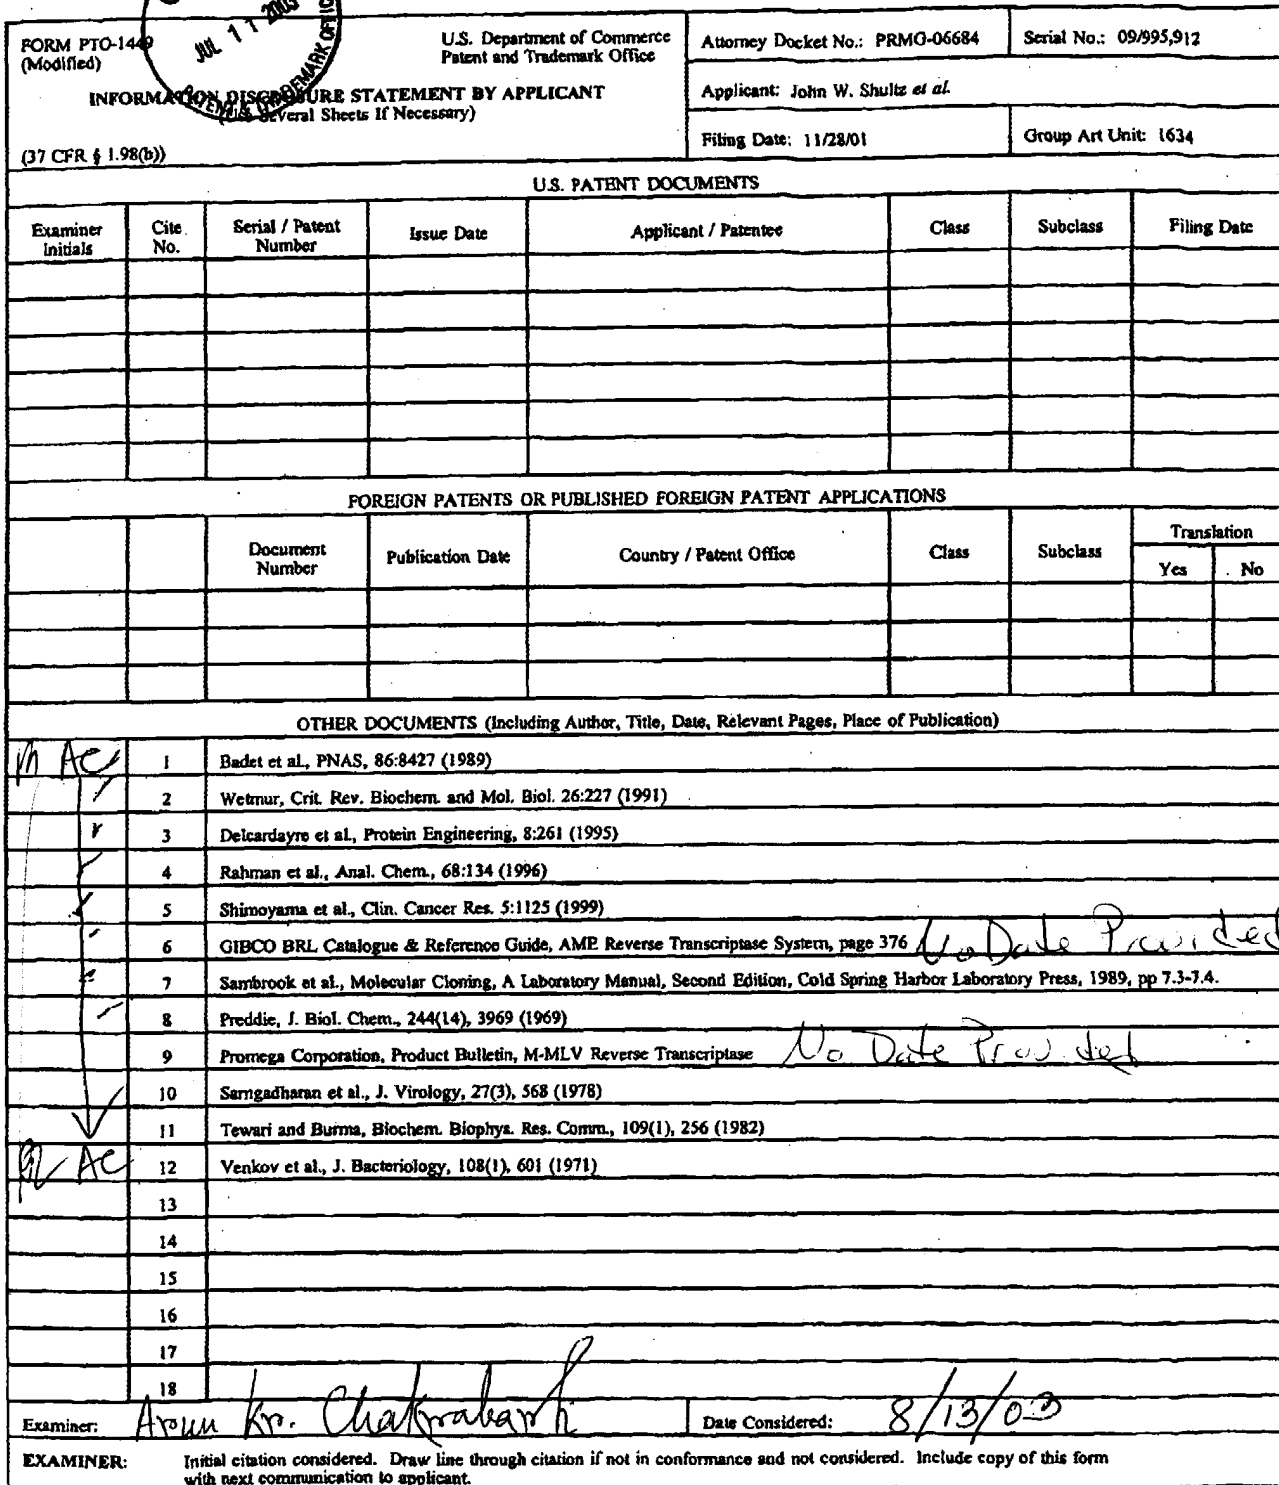 JUL 11 2003
FORM PTO-1449
(Modified)
U.S. Department of Commerce
Patent and Trademark Office
INFORMATION DISCLOSURE STATEMENT BY APPLICANT
Several Sheets If Necessary)
(37 CFR § 1.98(b))
Attorney Docket No.: PRMG-06684
Serial No.: 09/995,912
Applicant: John W. Shultz et al.
Filing Date: 11/28/01
Group Art Unit: 1634
U.S. PATENT DOCUMENTS
Examiner Initials
Cite No.
Serial / Patent Number
Issue Date
Applicant / Patentee
Class
Subclass
Filing Date
FOREIGN PATENTS OR PUBLISHED FOREIGN PATENT APPLICATIONS
Document Number
Publication Date
Country / Patent Office
Class
Subclass
Translation
Yes
No
OTHER DOCUMENTS (Including Author, Title, Date, Relevant Pages, Place of Publication)
AC 1 Badet et al., PNAS, 86:8427 (1989)
2 Wetmur, Crit. Rev. Biochem. and Mol. Biol. 26:227 (1991)
3 Delcardayre et al., Protein Engineering, 8:261 (1995)
4 Rahman et al., Anal. Chem., 68:134 (1996)
5 Shimoyama et al., Clin. Cancer Res. 5:1125 (1999)
6 GIBCO BRL Catalogue & Reference Guide, AMF Reverse Transcriptase System, page 376 No Date Provided
7 Sambrook et al., Molecular Cloning, A Laboratory Manual, Second Edition, Cold Spring Harbor Laboratory Press, 1989, pp 7.3-7.4.
8 Preddie, J. Biol. Chem., 244(14), 3969 (1969)
9 Promega Corporation, Product Bulletin, M-MLV Reverse Transcriptase No Date Provided
10 Sarngadharan et al., J. Virology, 27(3), 568 (1978)
11 Tewari and Burma, Biochem. Biophys. Res. Comm., 109(1), 256 (1982)
AC 12 Venkov et al., J. Bacteriology, 108(1), 601 (1971)
13
14
15
16
17
18
Examiner: Arun Kr. Chakrabarti
Date Considered: 8/13/03
EXAMINER: Initial citation considered. Draw line through citation if not in conformance and not considered. Include copy of this form
with next communication to applicant.